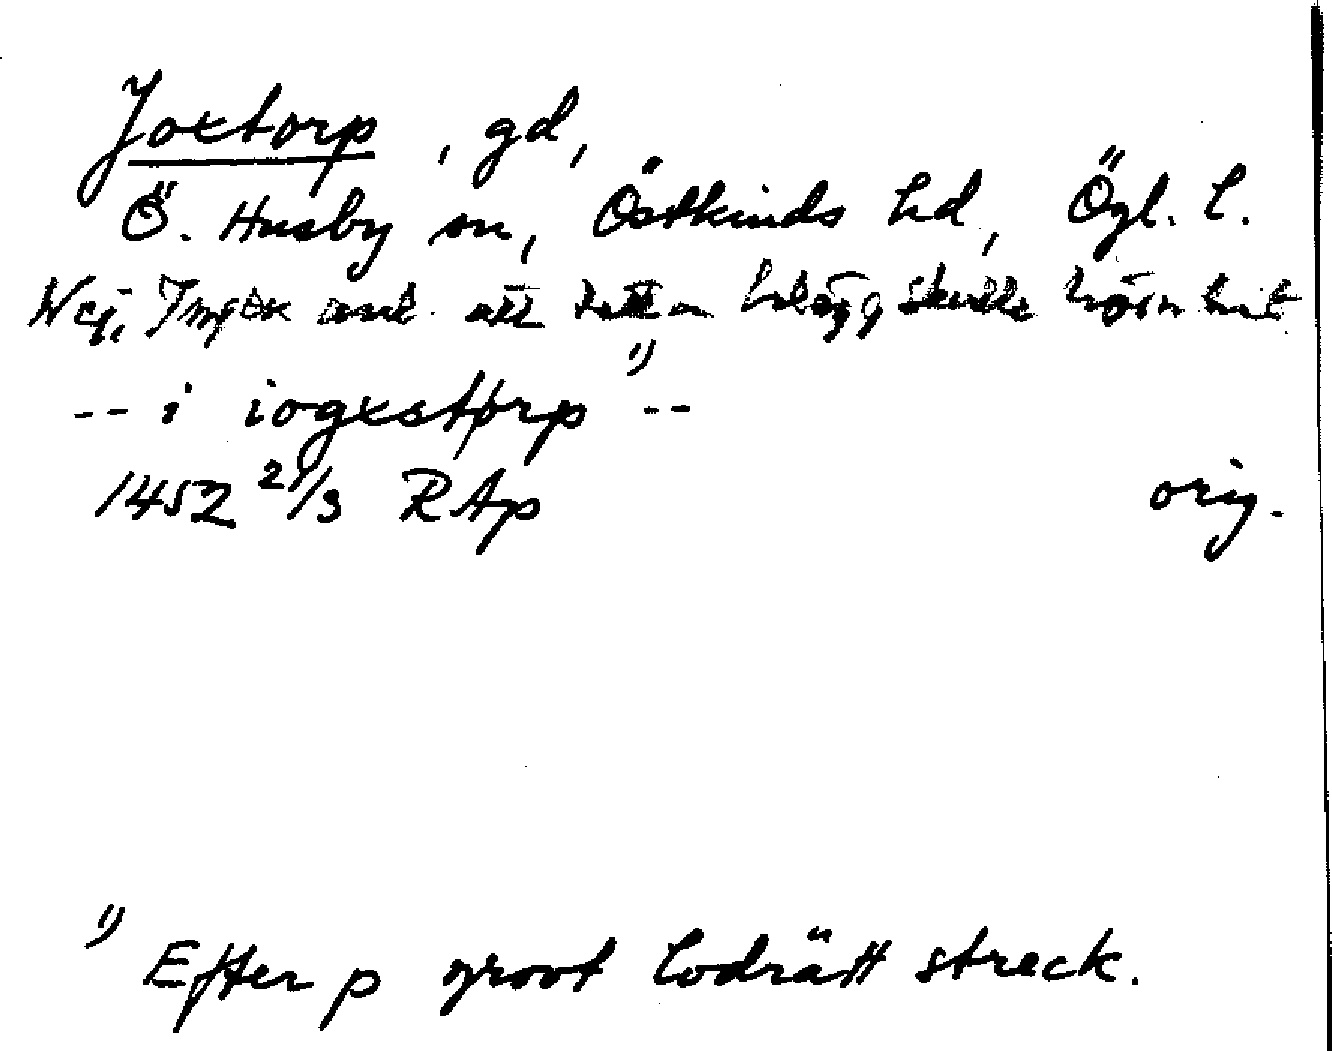 Joxtorp, gd,
Ö. Husby sn, Östkinds hd, Ögl. l.
Nej, Inget att detta belägg skulle höra hit
-- i iogxstorp ¹⁾ --
1452 21/3 RAp orig.
¹⁾ Efter p grovt lodrätt streck.